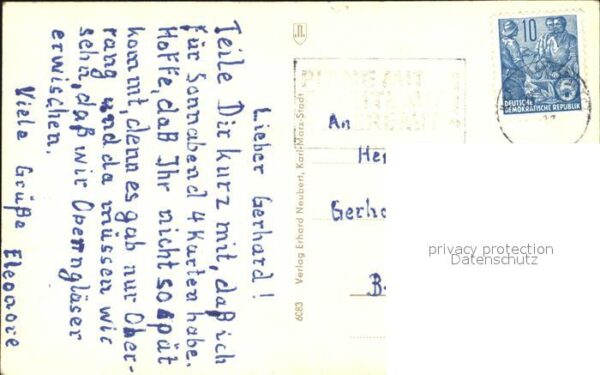 Lieber Gerhard!
Teile Dir kurz mit, daß ich
für Sonnabend 4 Karten habe.
Hoffe, daß Ihr nicht so spät
kommt, denn es gab nur Ober-
rang und da müssen wir
sehn, daß wir Opernngläser
erwischen.
Viele Grüße Eleonore
6083 Verlag Erhard Neubert, Karl-Marx-Stadt
10
DEUTSCHE
DEMOKRATISCHE REPUBLIK
MIT
An
Her
Gerha
B
privacy protection
Datenschutz